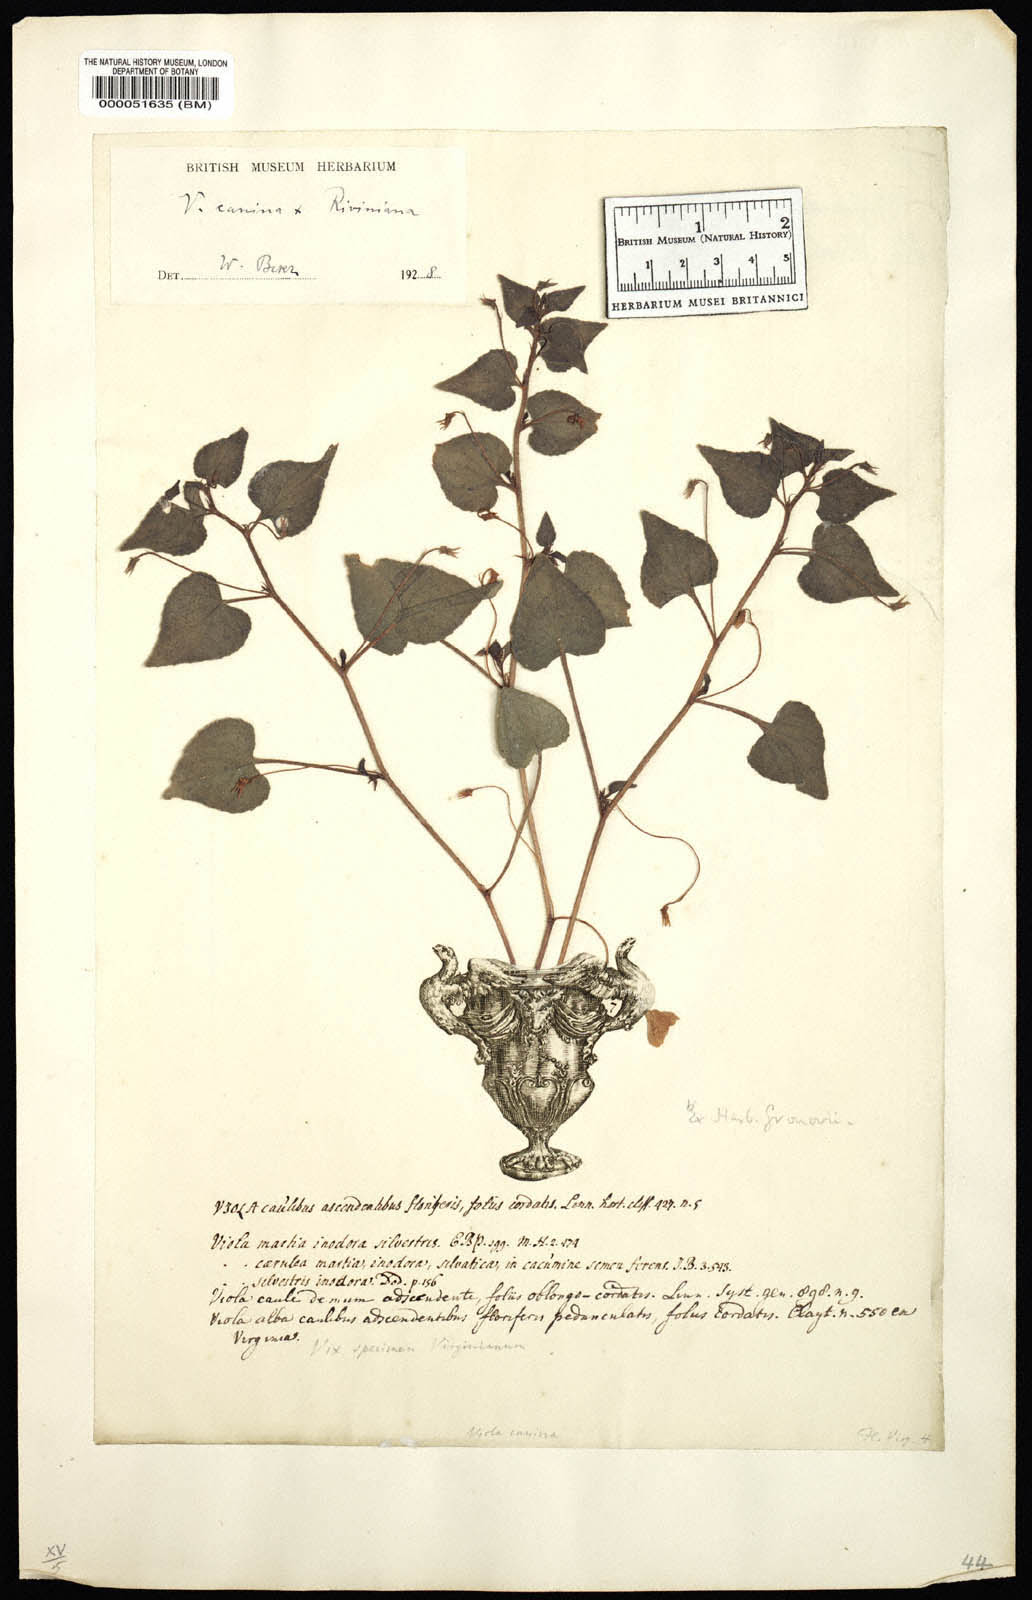 THE NATURAL HISTORY MUSEUM, LONDON
DEPARTMENT OF BOTANY
000051635 (BM)
BRITISH MUSEUM HERBARIUM
V. canina x Riviniana
DET. W. Beker 1928
1 2
BRITISH MUSEUM (NATURAL HISTORY)
1 2 3 4 5
HERBARIUM MUSEI BRITANNICI
Ex Herb. Gronovii.
VIOLA caulibus ascendentibus floriferis, foliis cordatis. Linn. hort. cliff. 427. n. 5
Viola martia inodora silvestris. C.B.P. 199. M.H. 2. 474
. . cærulea martia, inodora, silvatica, in cacumine semen ferens. J.B. 3. 543.
. . silvestris inodora. Dod. p. 156
Viola caule demum adscendente, foliis oblongo-cordatis. Linn. Syst. gen. 898. n. 9.
Viola alba caulibus adscendentibus floriferis pedunculatis, foliis cordatis. Clayt. n. 550 ex
Virginia.
Vix specimen Virginianum
Viola canina
Fl. Virg. 4
XV/5
44